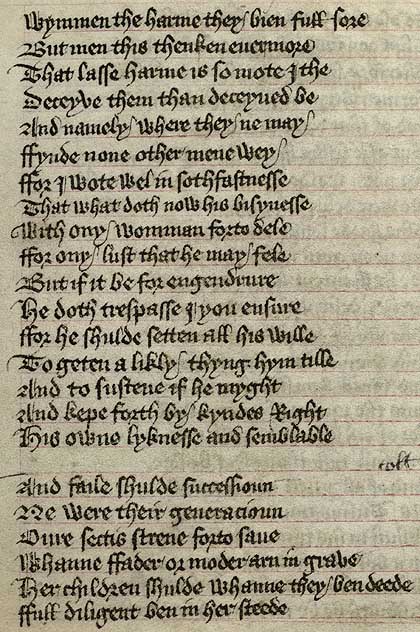 Wymmen the harme they bien full sore
But men this thenken euermore
That lasse harme is so mote I the
Deceyve them than deceyued be
And namely where they ne may
ffynde none other mene wey
ffor I wote wel in sothfastnesse
That what doth now his bisynesse
With ony womman forto dele
ffor ony lust that he may fele
But if it be for engendrure
He doth trespasse I you ensure
ffor he shulde setten all his wille
To geten a likly thyng hym tille
And to sustene if he myght
And kepe forth by kyndes Right
His owne lyknesse and semblable
And faile shulde successioun
Ne were their generacioun
Oure sectis strene forto saue
Whanne ffader or moder arn in graue
Her children shulde whanne they ben deede
ffull diligent ben in her steede